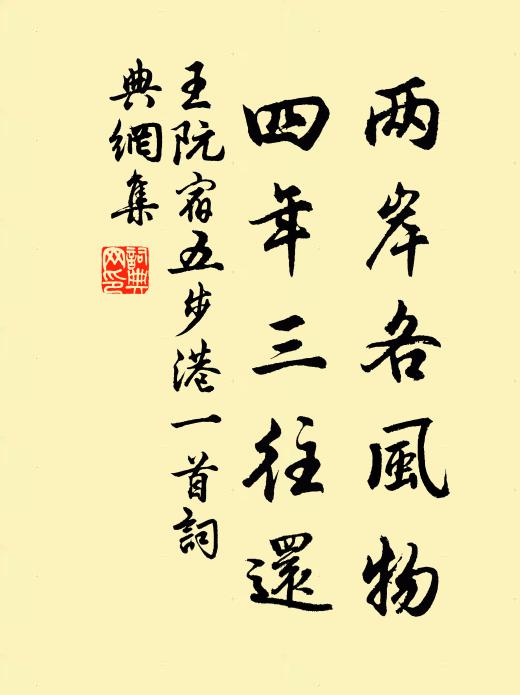 两岸各風物
四年三往還
王阮宿五步港一首詞
典網集
詞典
网印